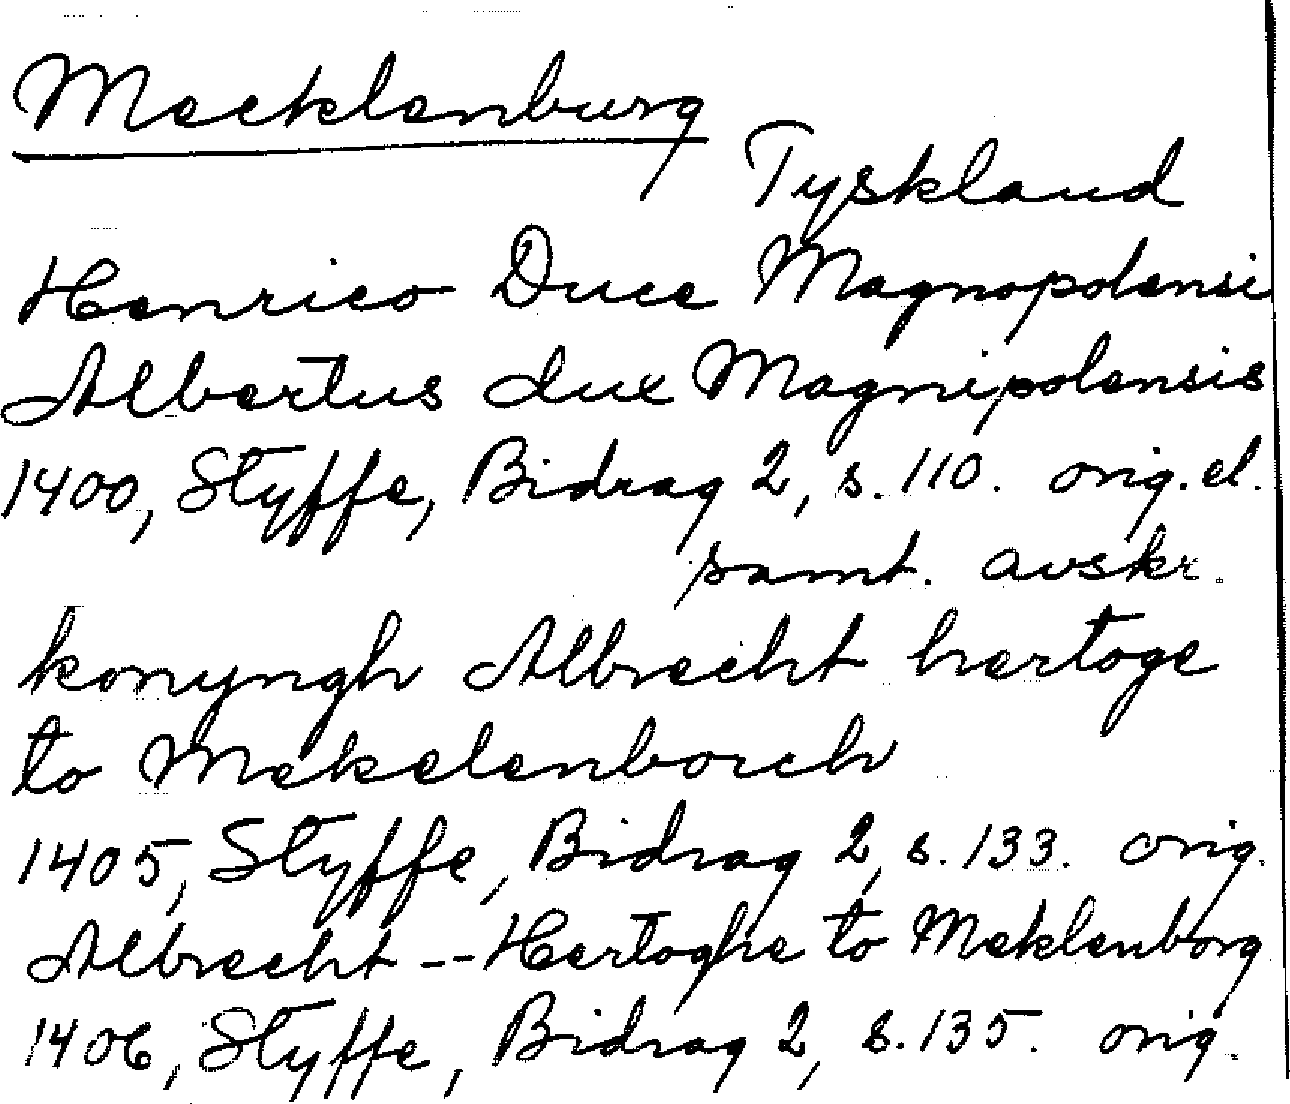 Mecklenburg
Tyskland
Henrico Duce Magnopolensi
Albertus dux Magnipolensis
1400, Styffe, Bidrag 2, s. 110. orig. el.
samt. avskr.
konyngh Albrecht hertoge
to Mekelenborch
1405, Styffe, Bidrag 2, s. 133. orig.
Albrecht -- Hertoghe to Meklenborg
1406, Styffe, Bidrag 2, s. 135. orig.